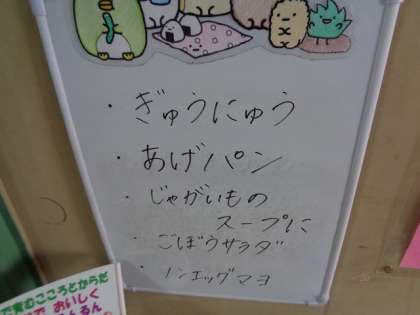 ・ぎゅうにゅう
・あげパン
・じゃがいもの
スープに
・ごぼうサラダ
・ノンエッグマヨ
で育むこころとからだ
で おいしく